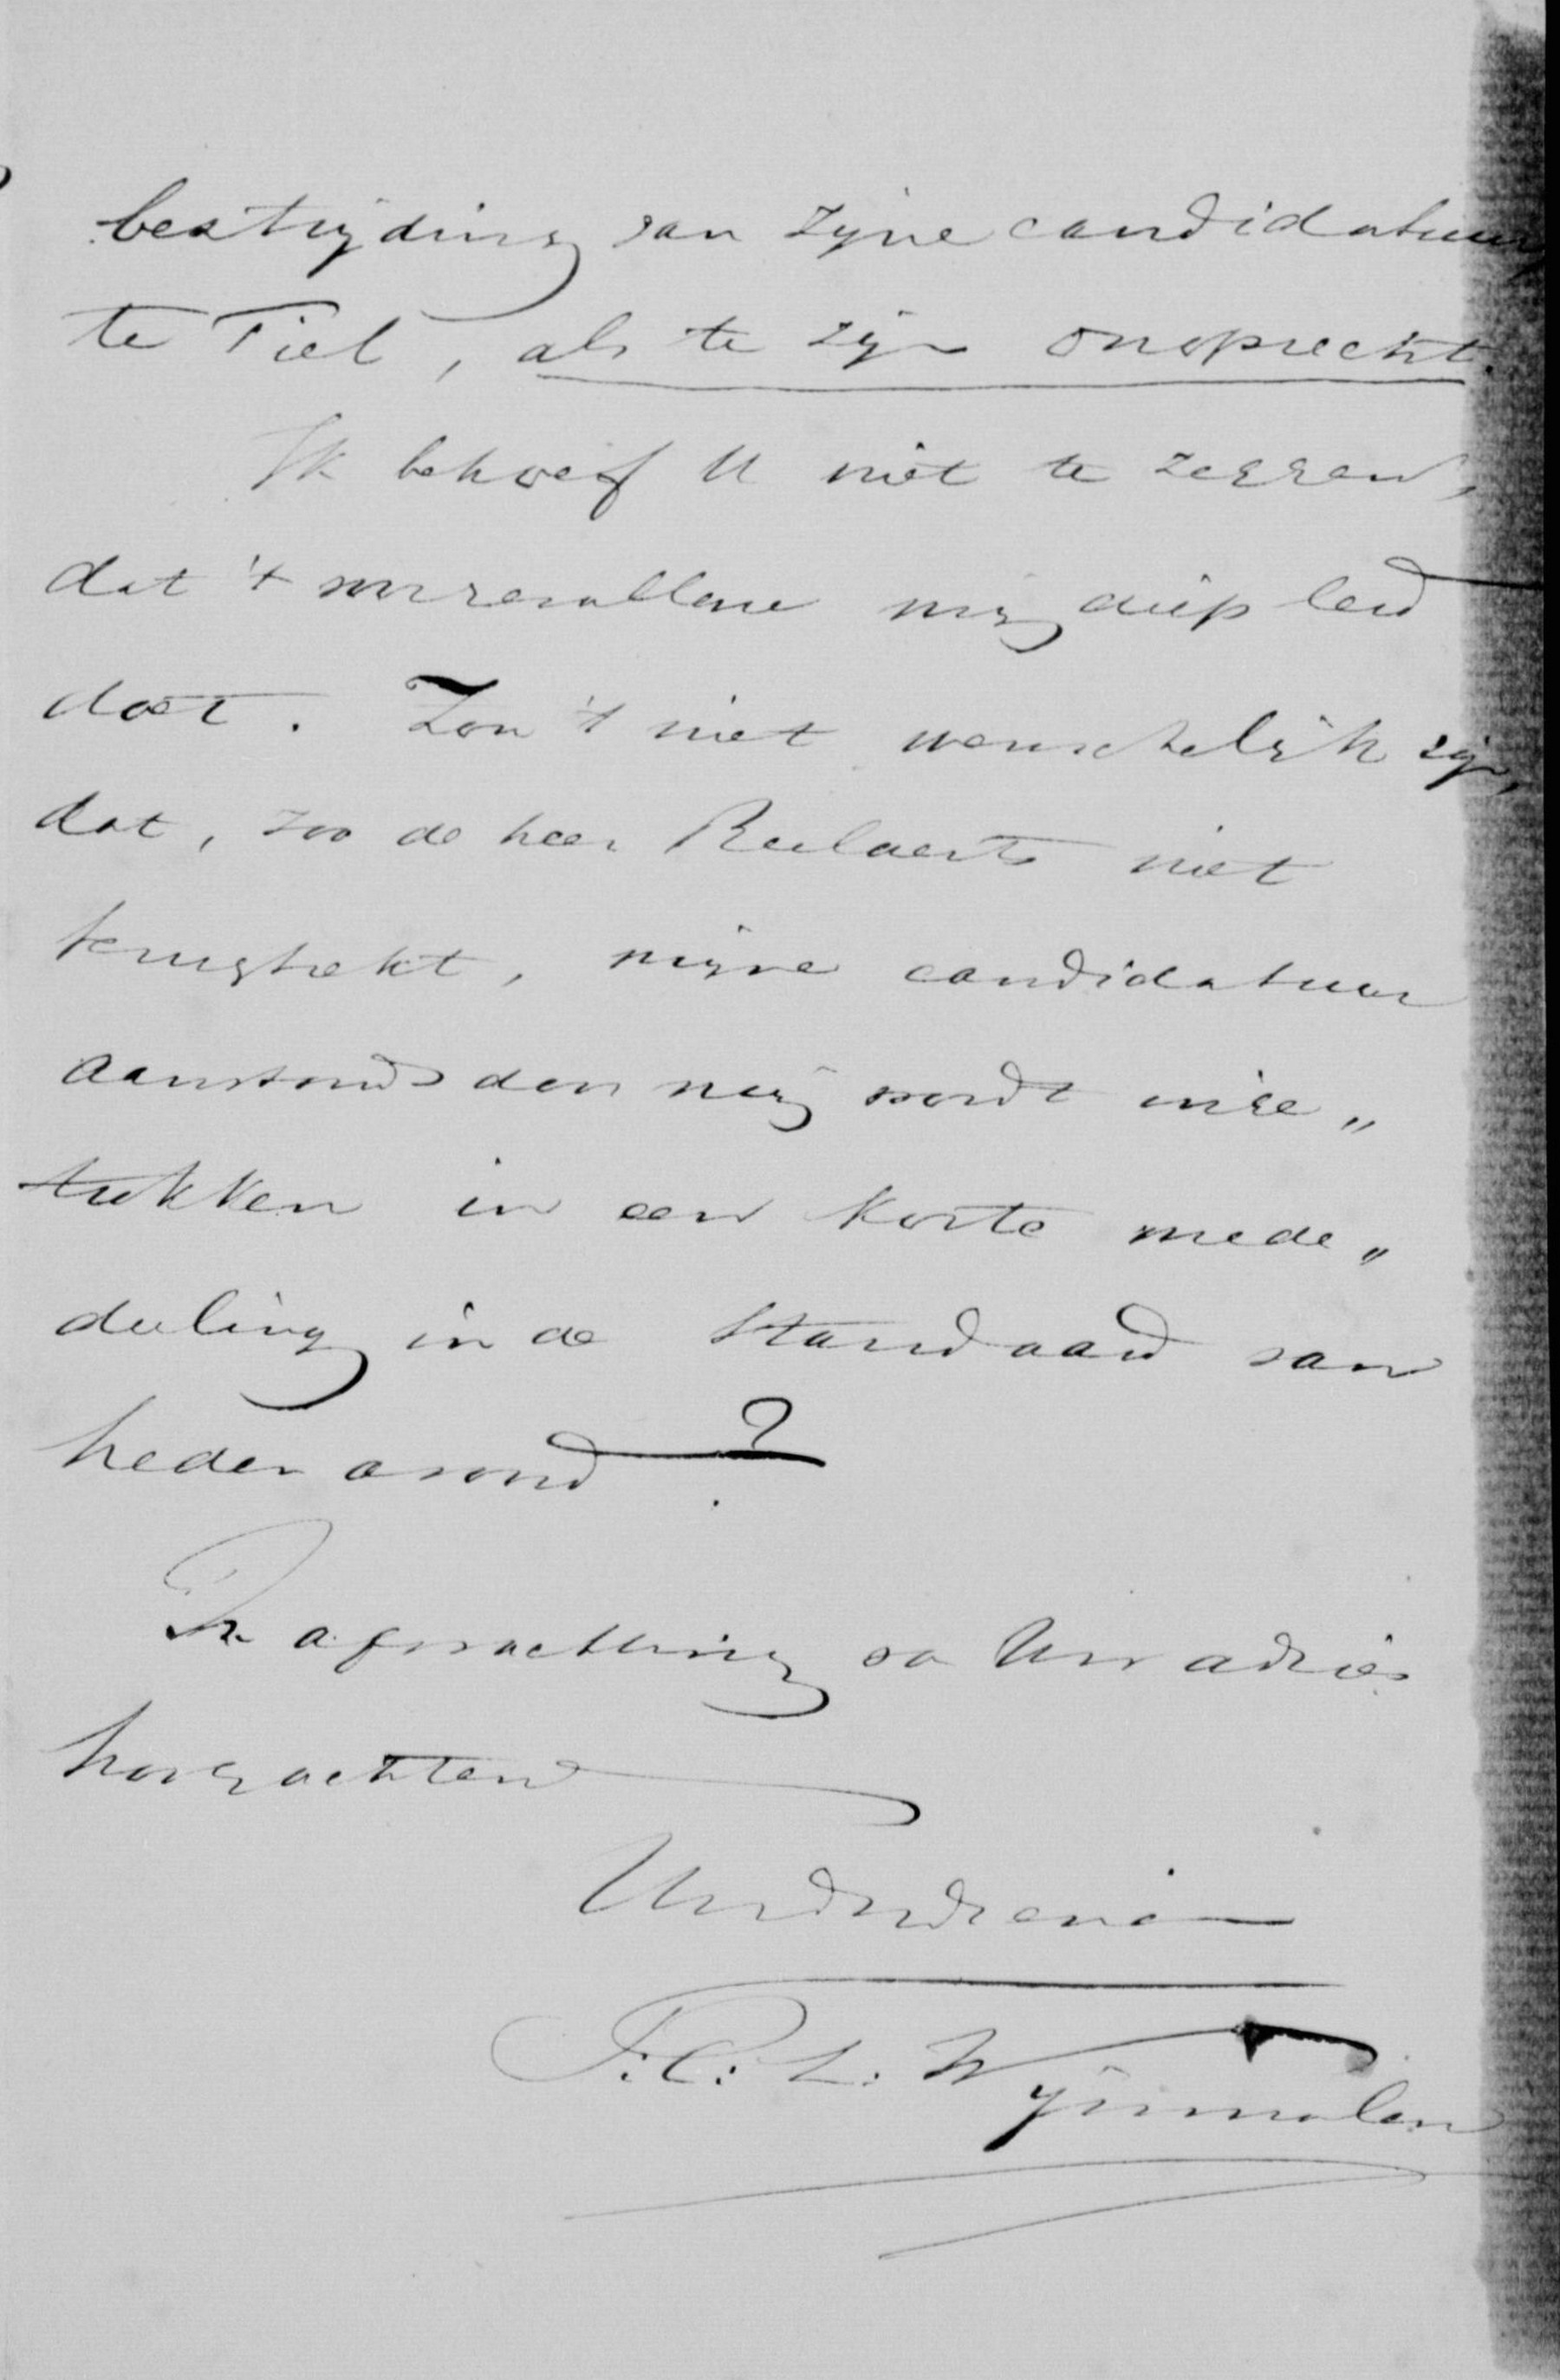 bestrijding van zijne candidatuur
te Tiel, als te zijn onoprecht.
Ik behoef U niet te zeggen,
dat 't voorgevallene mij diep leed
doet. Zou 't niet wenschelijk zijn,
dat, zoo de heer Beelaerts niet
terugtrekt, mijne candidatuur
aanstonds door mij wordt inge„
trokken in een korte mede„
deeling in de Standaard van
heden avond?
In afwachting van Uw advies
hoogachtend
Uw dw dienaar
T.C.L. Wijnmalen